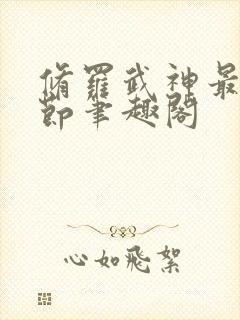 脩羅武神最
節筆趣閣
心如飛絮